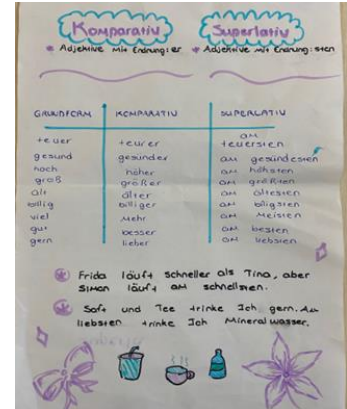 Komparativ Superlativ
* Adjektive mit Endung: er * Adjektive mit Endung: sten
GRUNDFORM KOMPARATIV SUPERLATIV
teuer teurer am teuersten
gesund gesünder am gesündesten
hoch höher am höhsten
groß größer am größten
alt älter am ältesten
billig billiger am biligsten
viel mehr am meisten
gut besser am besten
gern lieber am liebsten
Frida läuft schneller als Tina, aber
Simon läuft am schnellsten.
Saft und Tee trinke Ich gern. Am
liebsten trinke Ich Mineralwasser.